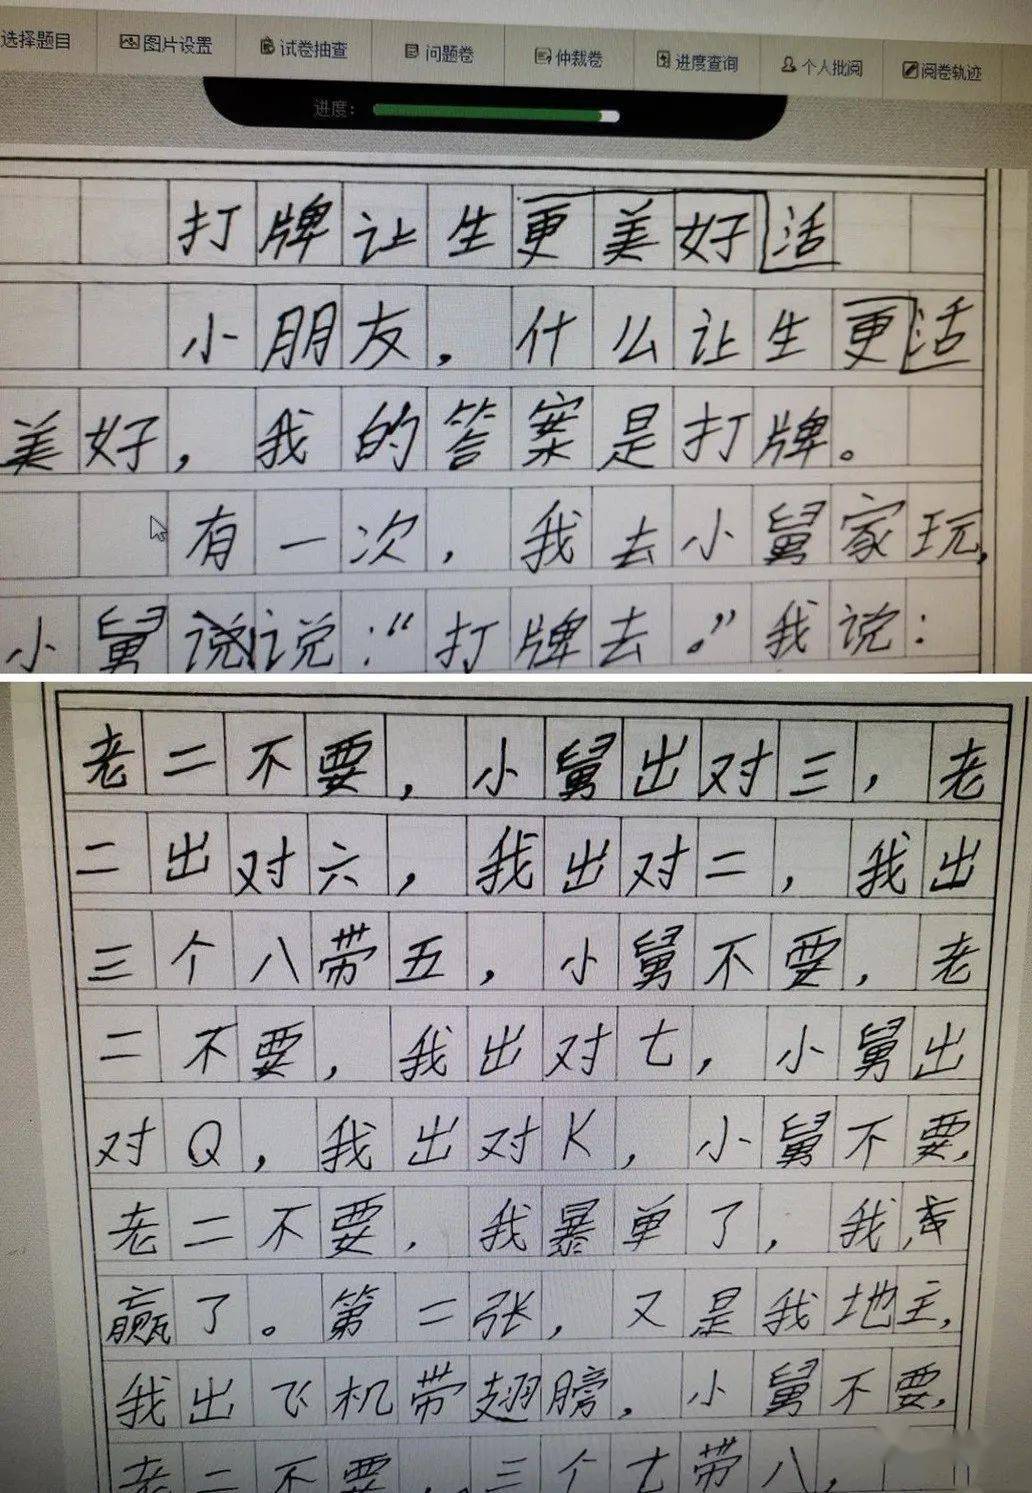 选择题目 图片设置 试卷抽查 问题卷 仲裁卷 进度查询 个人批阅 阅卷轨迹
进度:
打牌让生更美好活
小朋友,什么让生更活
美好,我的答案是打牌。
有一次,我去小舅家玩,
小舅说说:“打牌去。”我说:
老二不要,小舅出对三,老
二出对六,我出对二,我出
三个八带五,小舅不要,老
二不要,我出对七,小舅出
对Q,我出对K,小舅不要,
老二不要,我暴单了,我
赢了。第二张,又是我地主,
我出飞机带翅膀,小舅不要,
老二不要,三个七带八,